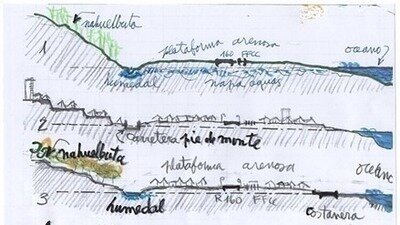 nahuelbuta
1
plataforma arenosa
160 FFCC
oceano
humedal
napa aguas
2
carretera pie de monte
nahuelbuta
plataforma arenosa
oceano
3
humedal
R160 FFCC
costanera